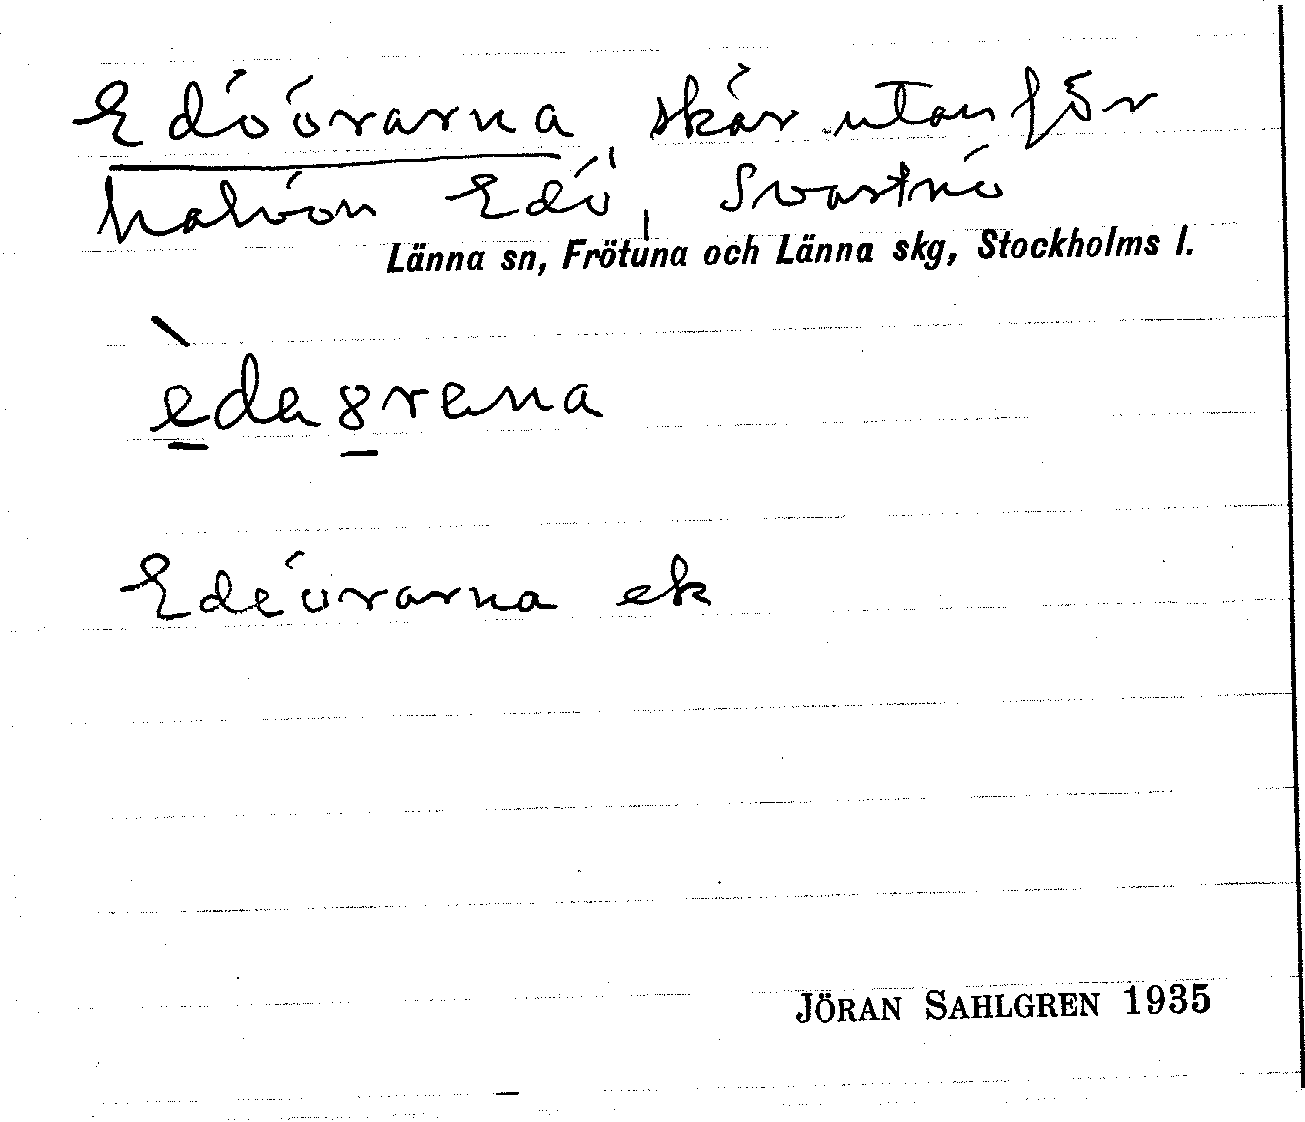 Edöörarna, skär utanför
halvön Edö, Svartnö
Länna sn, Frötuna och Länna skg, Stockholms l.
èdagrena
Edeörarna ek
JÖRAN SAHLGREN 1935